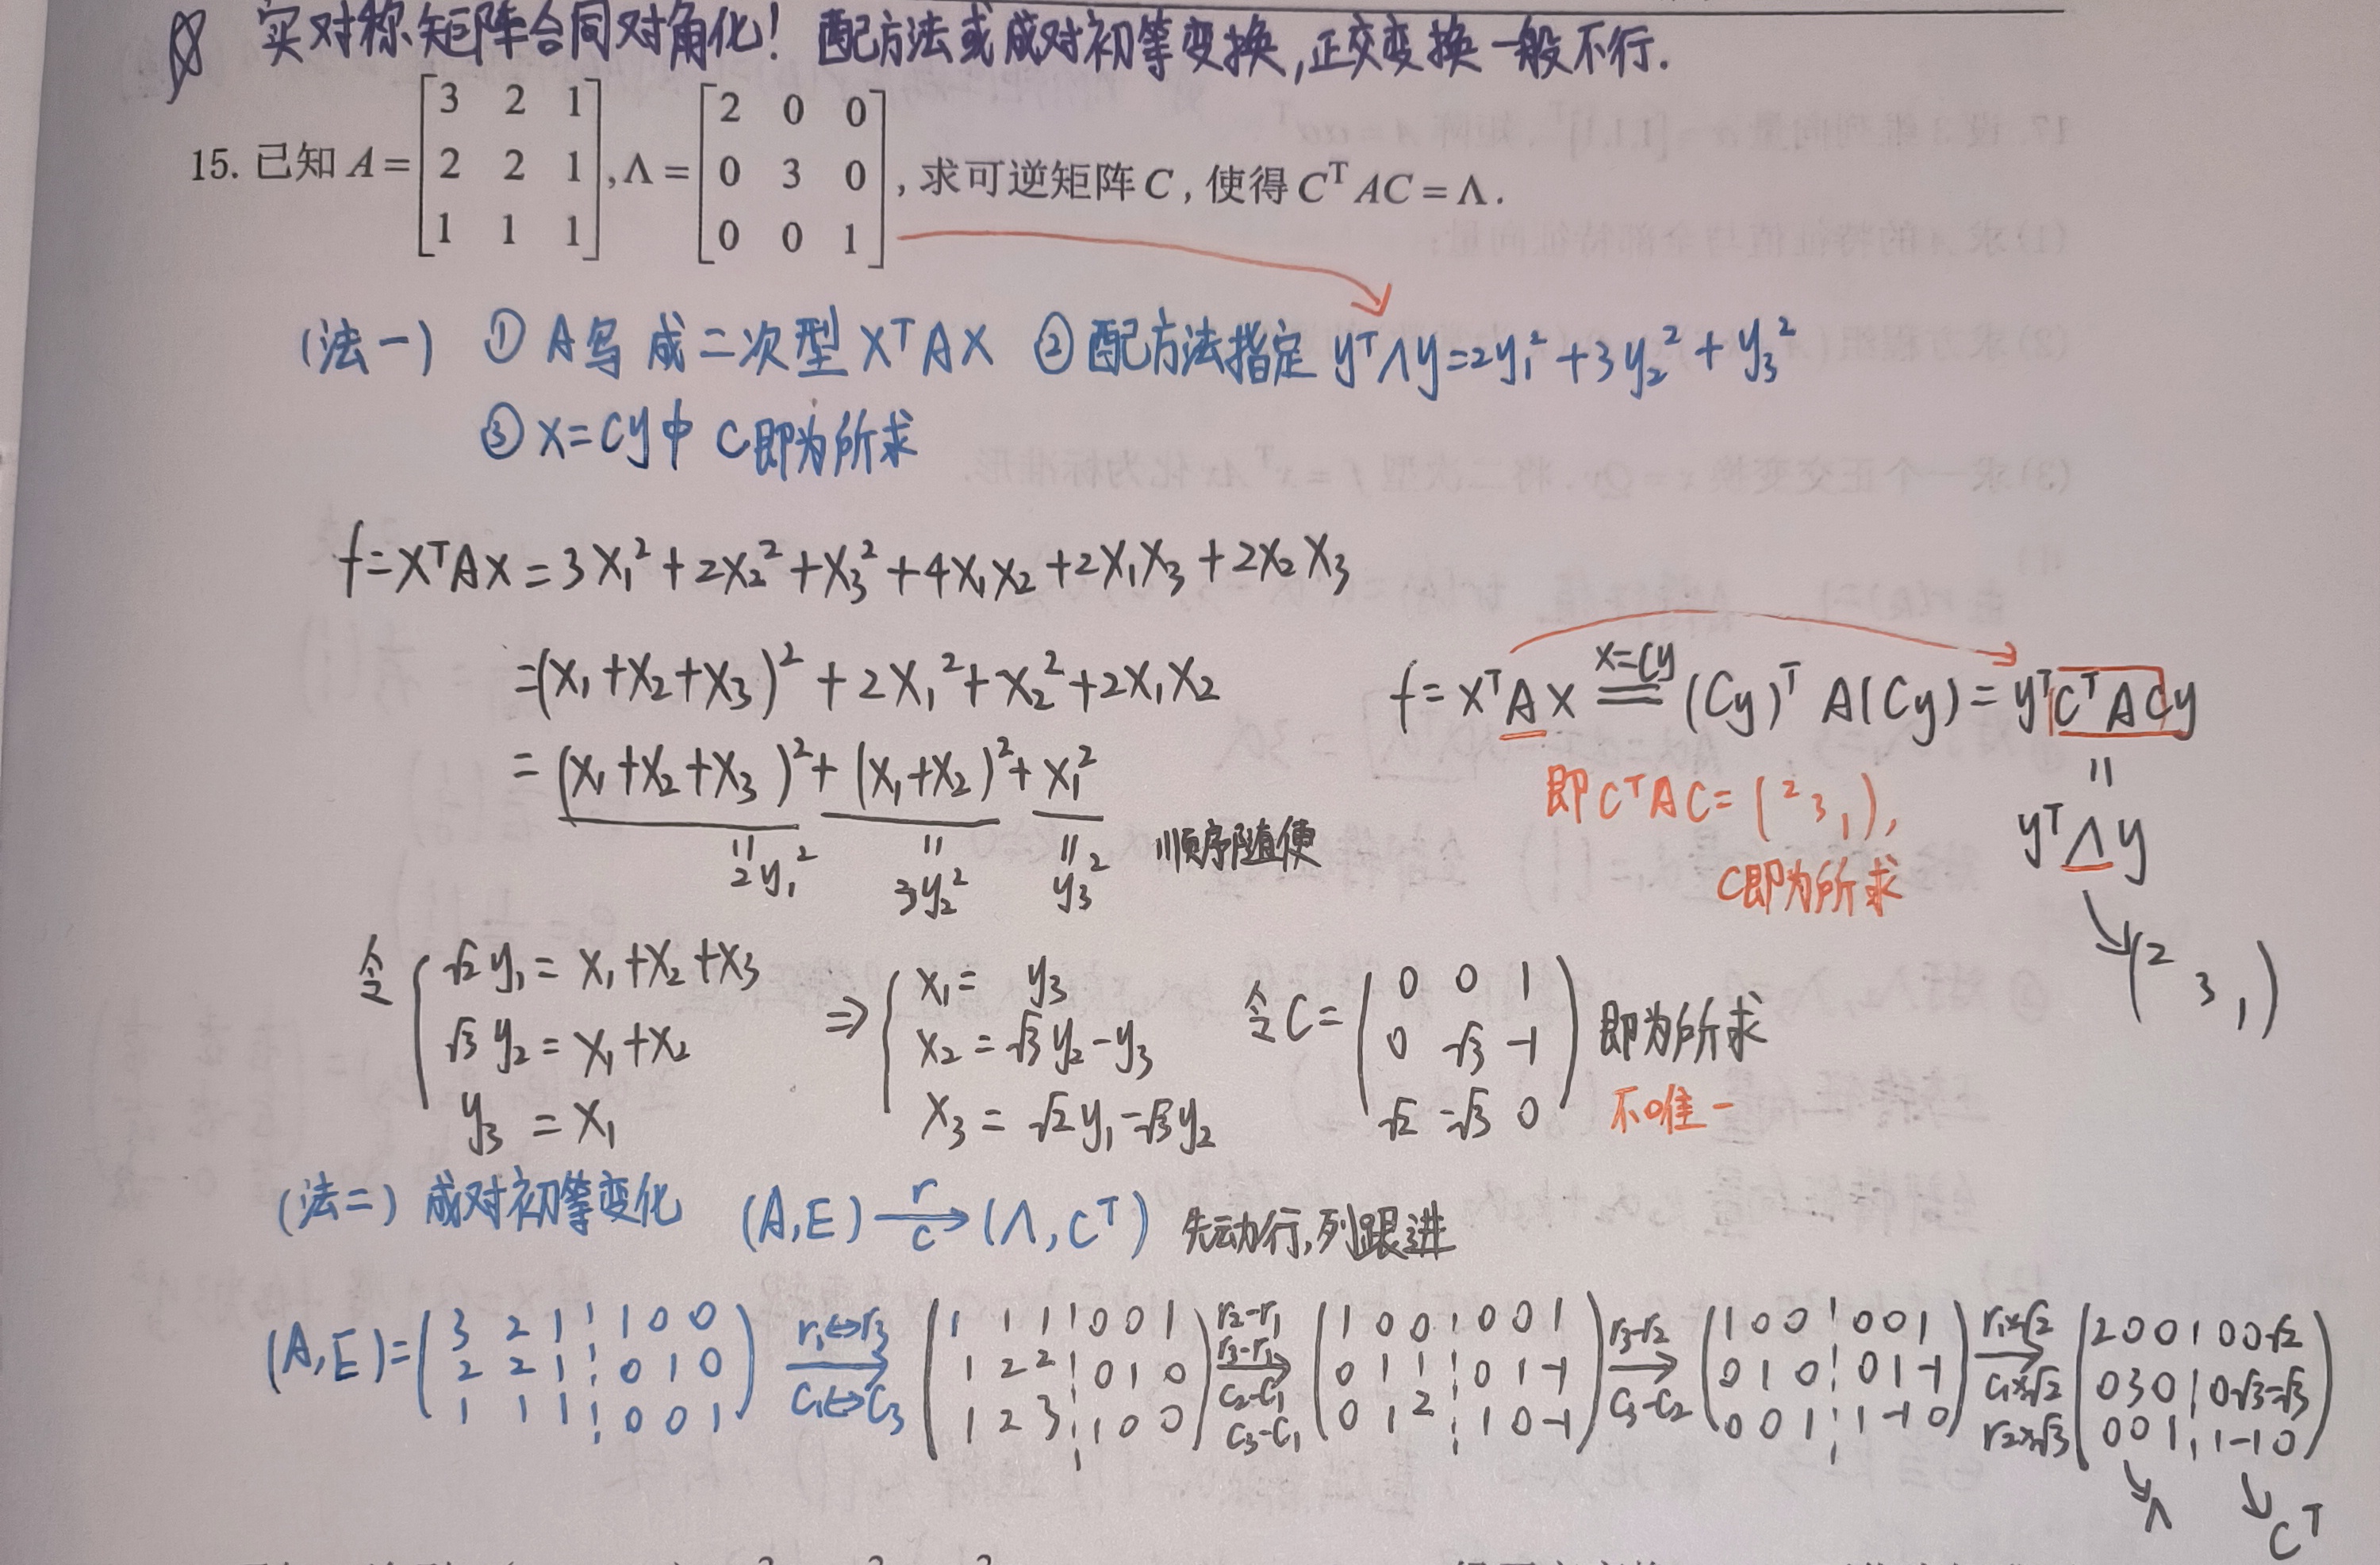 实对称矩阵合同对角化！ 配方法或成对初等变换,正交变换一般不行.
15. 已知 A = [3 2 1; 2 2 1; 1 1 1], Λ = [2 0 0; 0 3 0; 0 0 1], 求可逆矩阵 C, 使得 CᵀAC = Λ.
(法一) ① A写成二次型 XᵀAX ② 配方法指定 yᵀΛy=2y₁²+3y₂²+y₃²
③ X=Cy中 C即为所求
f=XᵀAX=3X₁²+2X₂²+X₃²+4X₁X₂+2X₁X₃+2X₂X₃
=(X₁+X₂+X₃)²+2X₁²+X₂²+2X₁X₂
=(X₁+X₂+X₃)²+(X₁+X₂)²+X₁²
‖ ‖ ‖
2y₁² 3y₂² y₃² 顺序随便
f=XᵀAX ══(X=Cy) (Cy)ᵀA(Cy)=yᵀCᵀACy
‖
即CᵀAC=(2 3 1),
yᵀΛy
C即为所求
(2 3 1)
令 { √2y₁=X₁+X₂+X₃
√3y₂=X₁+X₂
y₃=X₁
⇒ { X₁= y₃
X₂=√3y₂-y₃
X₃=√2y₁-√3y₂
令C=(0 0 1; 0 √3 -1; √2 -√3 0) 即为所求
不唯一
(法二) 成对初等变化 (A,E) →(r/c) (Λ,Cᵀ) 先动行,列跟进
(A,E)=(3 2 1 ¦ 1 0 0; 2 2 1 ¦ 0 1 0; 1 1 1 ¦ 0 0 1) →(r₁↔r₃ / C₁↔C₃) (1 1 1 ¦ 0 0 1; 1 2 2 ¦ 0 1 0; 1 2 3 ¦ 1 0 0) →(r₂-r₁ r₃-r₁ / C₂-C₁ C₃-C₁) (1 0 0 ¦ 0 0 1; 0 1 1 ¦ 0 1 -1; 0 1 2 ¦ 1 0 -1) →(r₃-r₂ / C₃-C₂) (1 0 0 ¦ 0 0 1; 0 1 0 ¦ 0 1 -1; 0 0 1 ¦ 1 -1 0) →(r₁×√2 / C₁×√2 r₂×√3) (2 0 0 ¦ 0 0 √2; 0 3 0 ¦ 0 √3 -√3; 0 0 1 ¦ 1 -1 0)
Λ Cᵀ